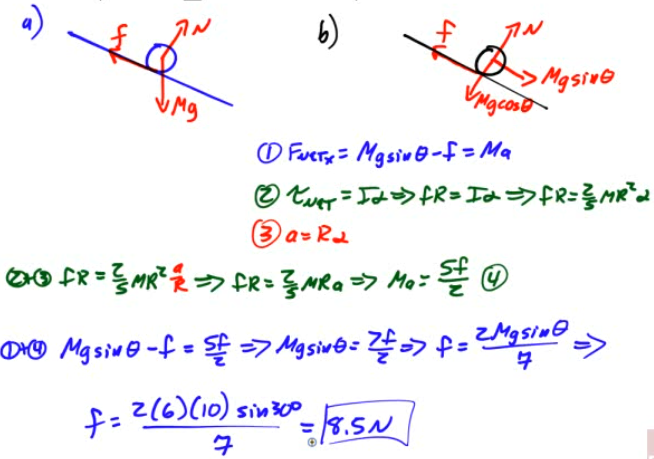 a)
f
N
Mg
b)
f
N
Mgsinθ
Mgcosθ
① F_NETx = Mgsinθ - f = Ma
② τ_NET = Iα ⇒ fR = Iα ⇒ fR = 2/5 MR²α
③ a = Rα
②+③ fR = 2/5 MR² a/R ⇒ fR = 2/5 MRa ⇒ Ma = 5f/2 ④
①+④ Mgsinθ - f = 5f/2 ⇒ Mgsinθ = 7f/2 ⇒ f = 2Mgsinθ/7 ⇒
f = 2(6)(10) sin30°/7 = 8.5N